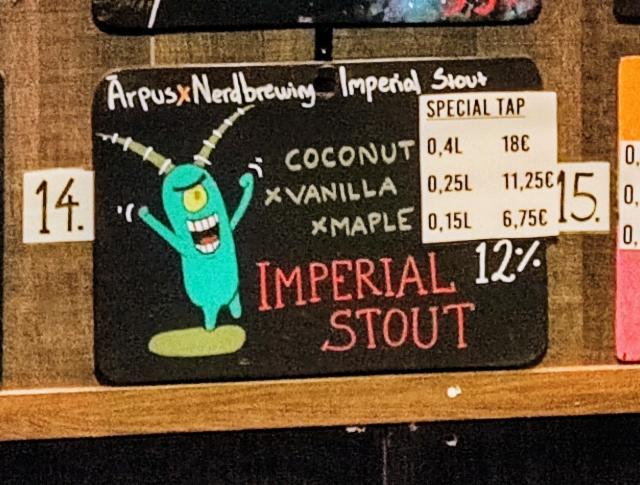 ĀrpusxNerdbrewing Imperial Stout
SPECIAL TAP
0,4L 18€
0,25L 11,25€
0,15L 6,75€
COCONUT
xVANILLA
xMAPLE
12%
IMPERIAL
STOUT
14.
15.
0,
0,
0,